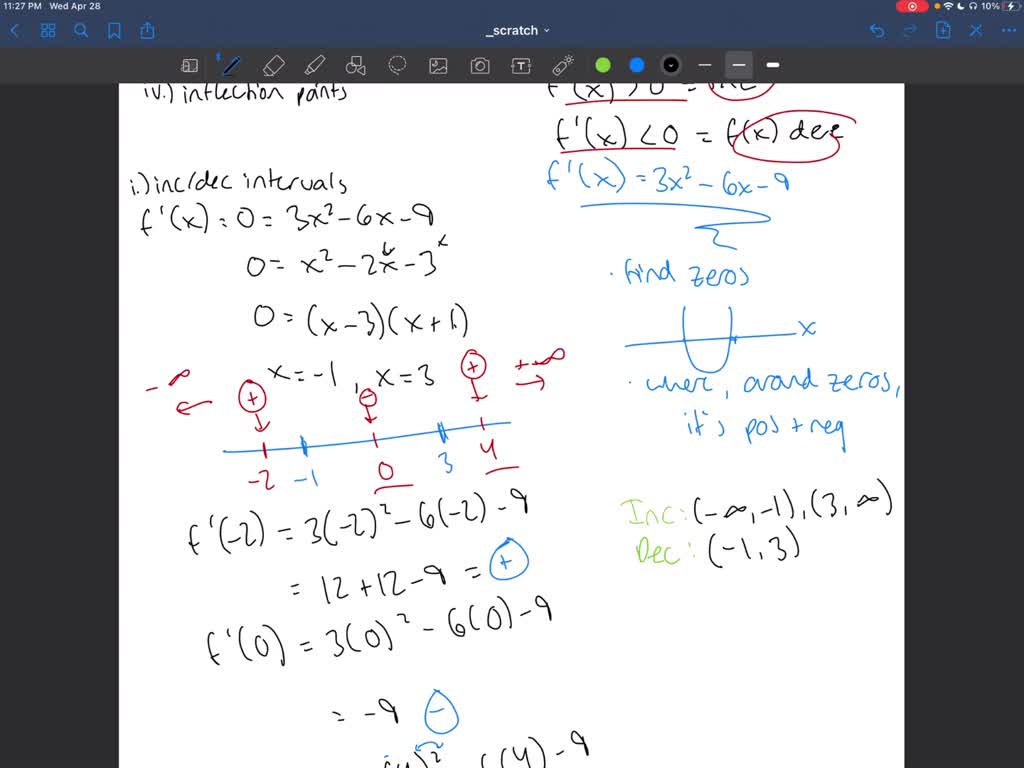 11:27 PM Wed Apr 28
10%
_scratch
iv.) inflection points
f'(x) > 0 = inc
f'(x) < 0 = f(x) dec
f'(x) = 3x² - 6x - 9
i.) inc/dec intervals
f'(x) = 0 = 3x² - 6x - 9
0 = x² - 2x - 3
0 = (x - 3)(x + 1)
x = -1, x = 3
-∞ + - + +∞
-2 -1 0 3 4
f'(-2) = 3(-2)² - 6(-2) - 9
= 12 + 12 - 9 = +
f'(0) = 3(0)² - 6(0) - 9
= -9 -
(4)² - 6(4) - 9
· find zeros
x
· where, around zeros,
it's pos + neg
Inc: (-∞, -1), (3, ∞)
Dec: (-1, 3)